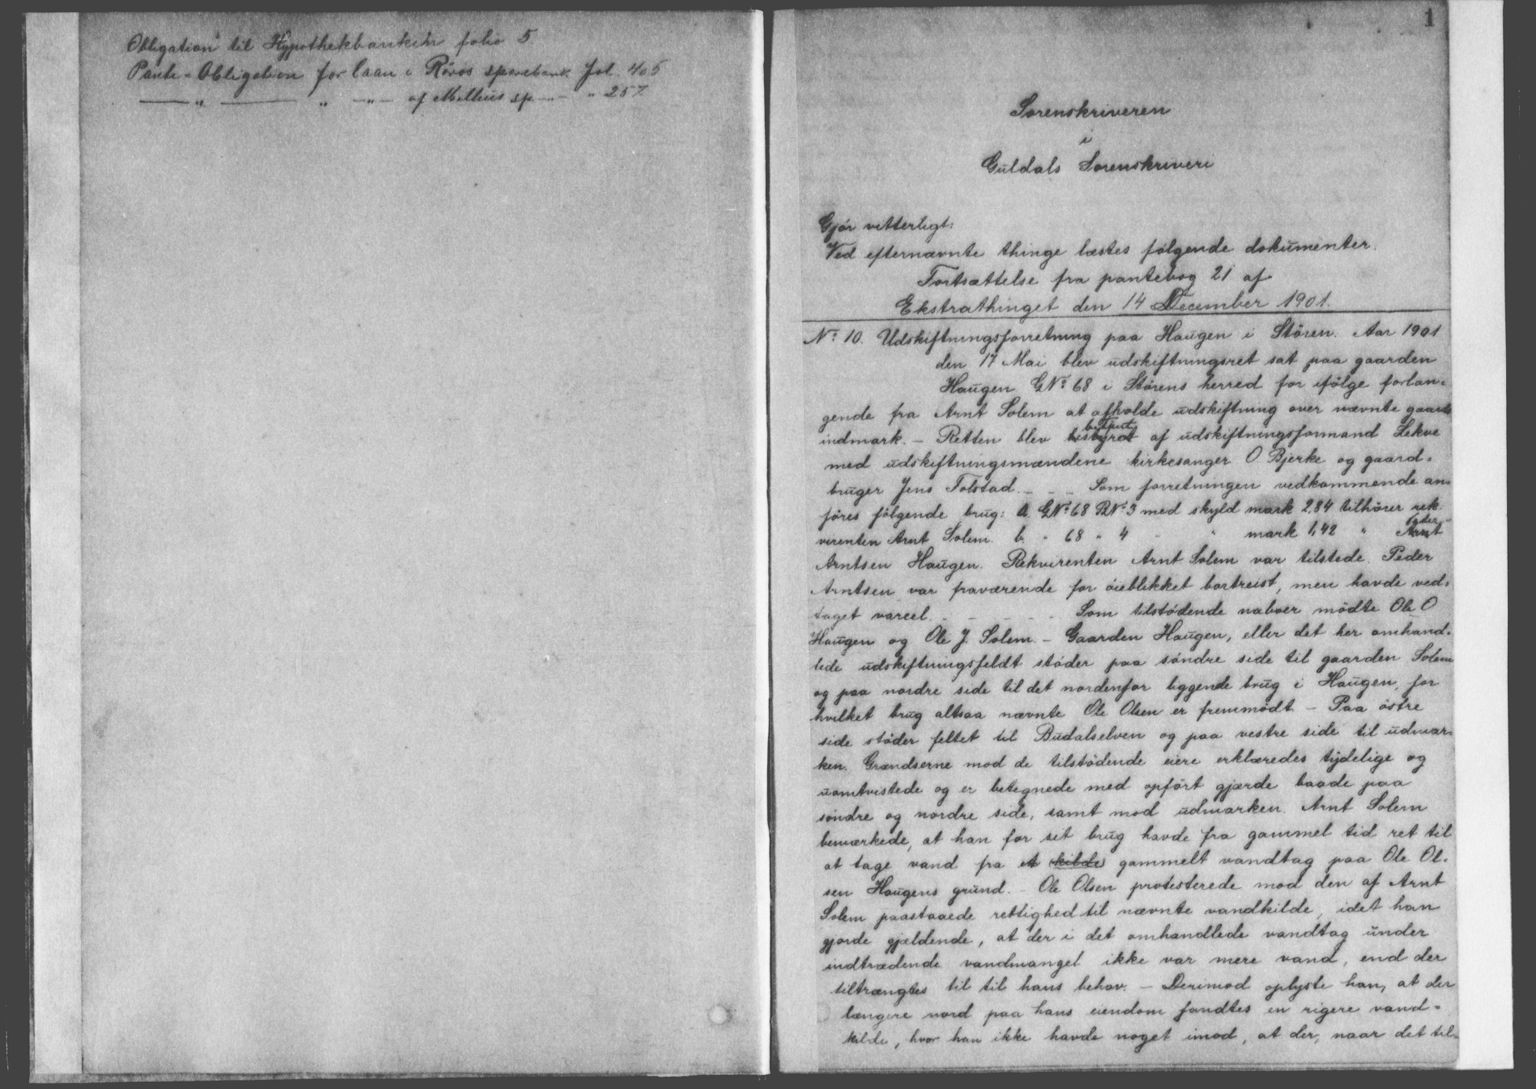 Obligation til Hypothekbanken folio 5.
Pante-Obligation for laan i Röros sparebank Fol. 405
— " — " — " — af Melhus sp — " — " 257
1
Sorenskriveren
i
Guldals Sorenskriveri
Gjör vitterligt:
Ved efternævnte thinge læstes følgende dokumenter.
Fortsættelse fra pantebog 21 af
Ekstrathinget den 14 December 1901.
No 10. Udskiftningsforretning paa Haugen i Stören. Aar 1901
den 17 Mai blev udskiftningsret sat paa gaarden
Haugen GNo 68 i Störens herred for ifölge forlan-
gende fra Arnt Solem at afholde udskiftning over nævnte gaards
indmark. — Retten blev betjent af udskiftningsformand Lekve
med udskiftningsmændene kirkesanger O Bjerke og gaard-
bruger Jens Tolstad. — — — Som forretningen vedkommende an-
föres fölgende brug: a. GNo 68 BNo 3 med skyld mark 2,84 tilhörer rek-
virenten Arnt Solem. b. " 68 " 4 " " mark 1,42 " Peder
Arntsen Haugen. Rekvirenten Arnt Solem var tilstede. Peder
Arntsen var fraværende for öieblikket bortreist, men havde ved-
taget varsel. — — — — Som tilstödende naboer mödte Ole O
Haugen og Ole J. Solem. — Gaarden Haugen, eller det her omhand-
lede udskiftningsfeldt stöder paa söndre side til gaarden Solem
og paa nordre side til det nordenfor liggende brug i Haugen, for
hvilket brug altsaa nævnte Ole Olsen er fremmödt. — Paa östre
side stöder feltet til Budalselven og paa vestre side til udmar-
ken. Grændserne mod de tilstödende eiere erklæredes tydelige og
uomtvistede og er betegnede med opfört gjærde baade paa
söndre og nordre side, samt mod udmarken. Arnt Solem
bemærkede, at han for sit brug havde fra gammel tid ret til
at tage vand fra et kilde gammelt vandtag paa Ole Ol-
sen Haugens grund. — Ole Olsen protesterede mod den af Arnt
Solem paastaaede rettighed til nævnte vandkilde, idet han
gjorde gjældende, at der i det omhandlede vandtag under
indtrædende vandmangel ikke var mere vand, end der
tiltrængtes til til hans behov. — Derimod oplyste han, at der
længere nord paa hans eiendom fandtes en rigere vand-
kilde, hvor han ikke havde noget imod, at der, naar det til-